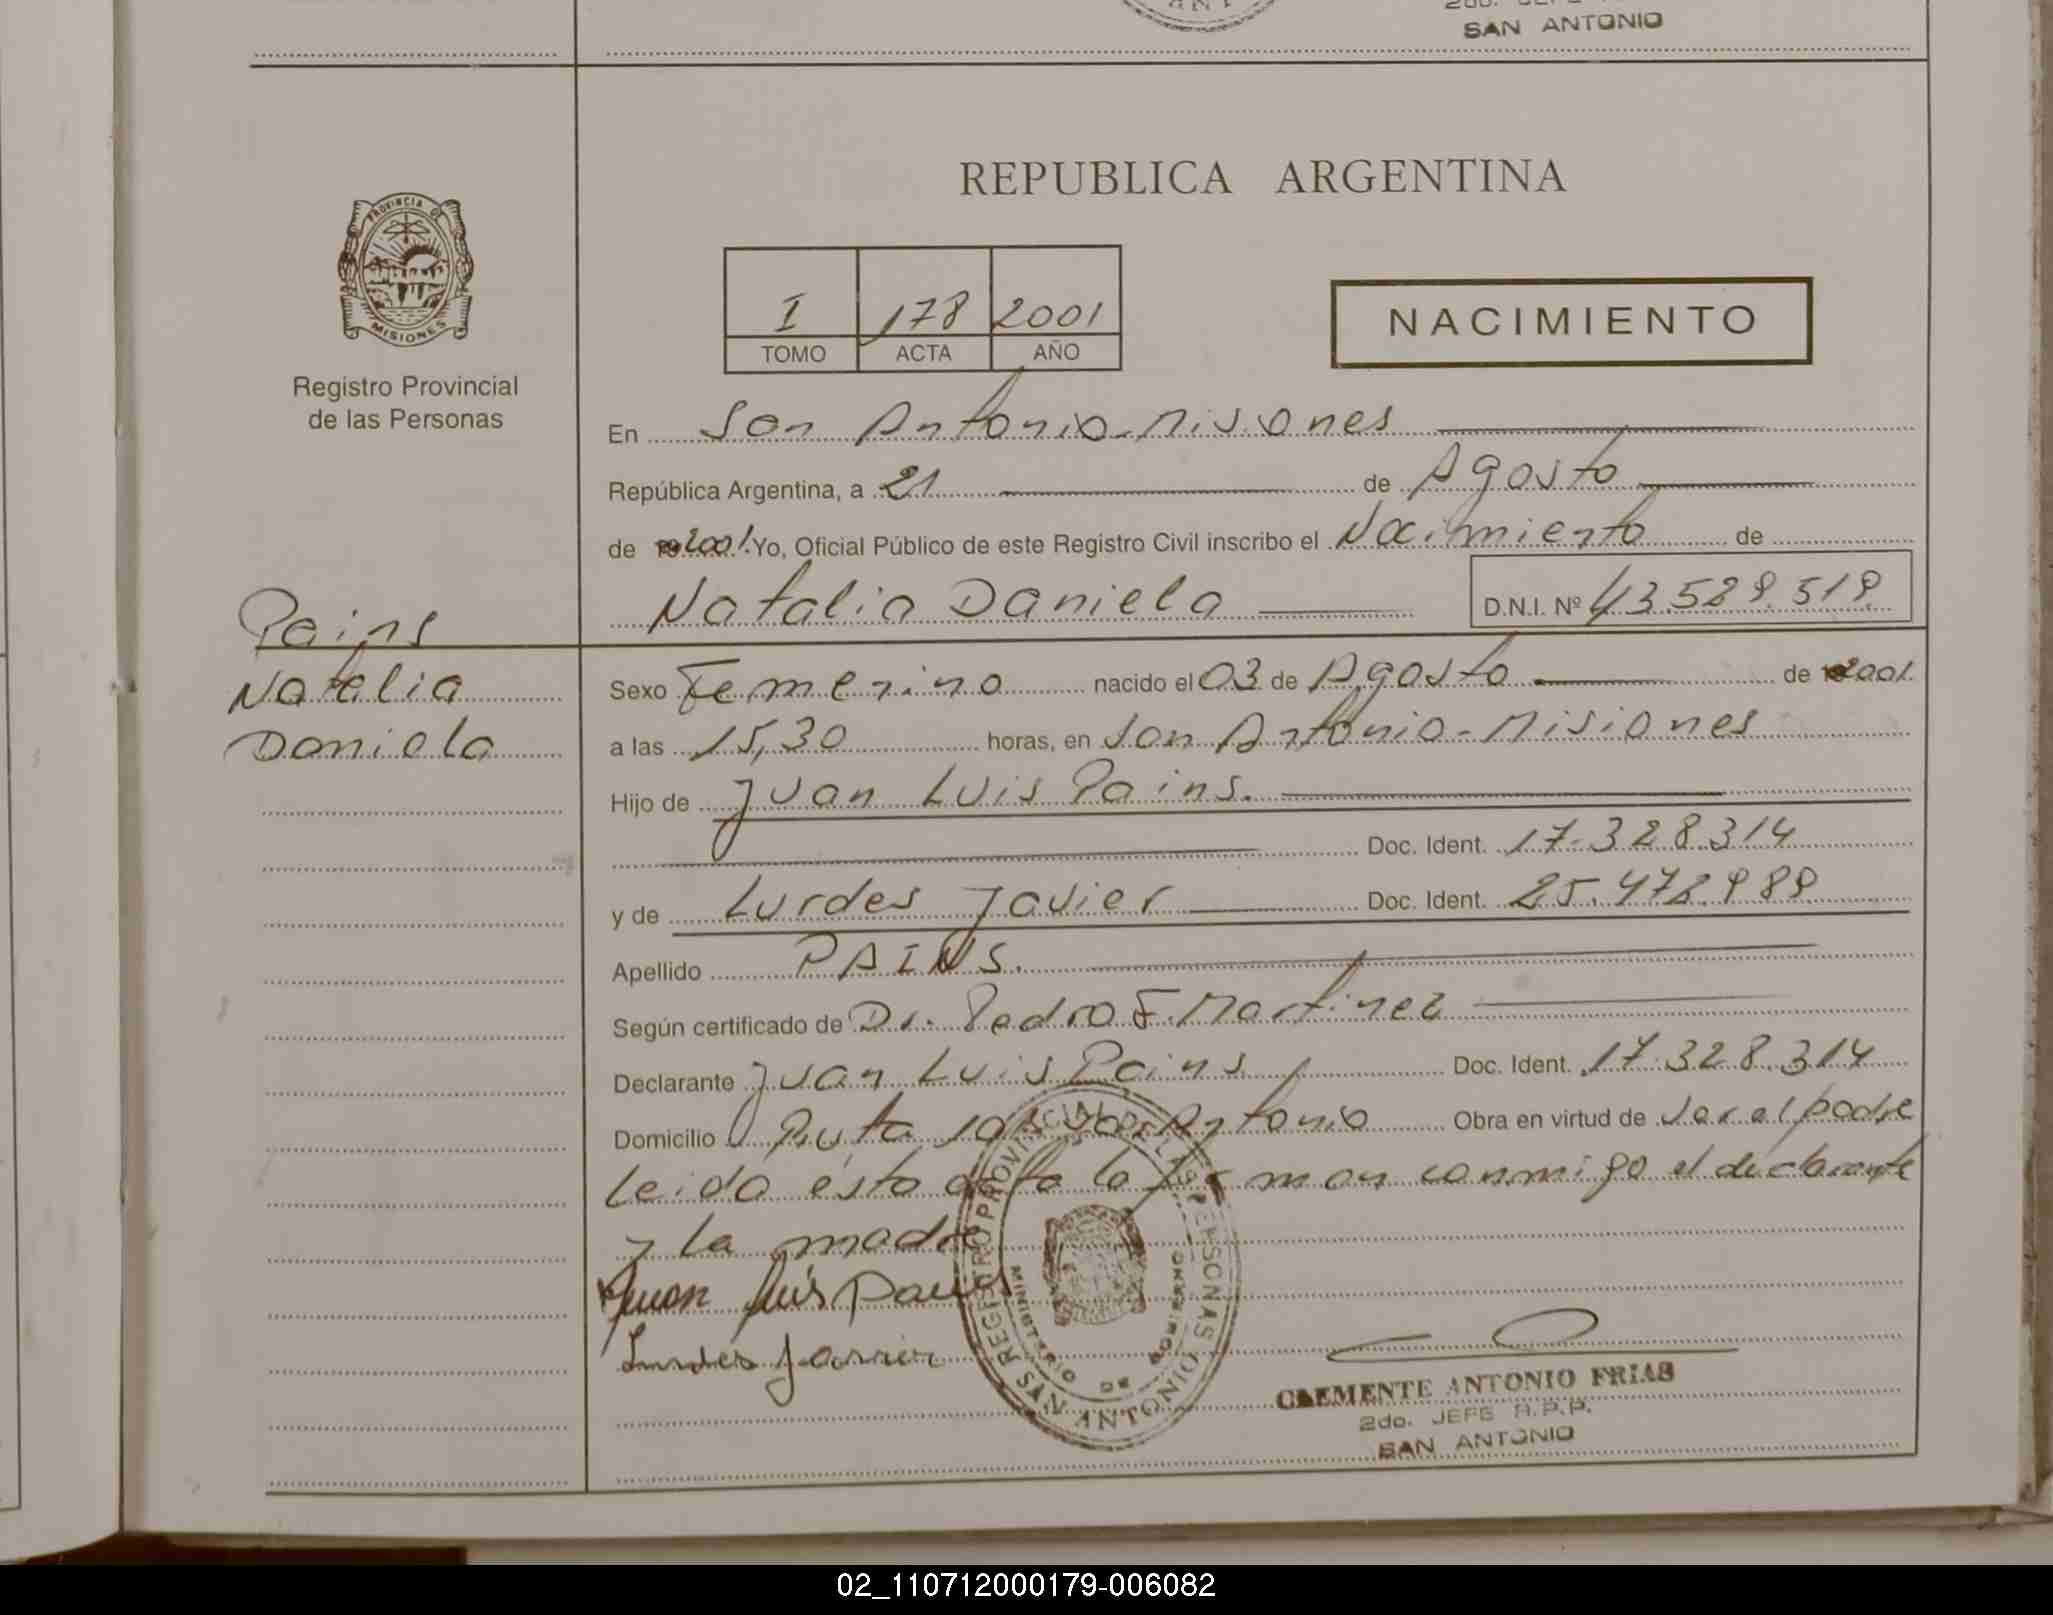 SAN ANTONIO
REPUBLICA ARGENTINA
PROVINCIA DE
MISIONES
Registro Provincial
de las Personas
I 178 2001
TOMO ACTA AÑO
NACIMIENTO
En San Antonio-Misiones
República Argentina, a 21 de Agosto
de 2001. Yo, Oficial Público de este Registro Civil inscribo el Nacimiento de
Natalia Daniela D.N.I. Nº 43.529.519.
Pains
Natalia
Daniela
Sexo Femenino nacido el 03 de Agosto de 2001.
a las 15,30 horas, en San Antonio-Misiones
Hijo de Juan Luis Pains.
Doc. Ident. 17.328.314
y de Lurdes Javier Doc. Ident. 25.472.989
Apellido PAINS.
Según certificado de Dr. Pedro F. Martinez
Declarante Juan Luis Pains Doc. Ident. 17.328.314
Domicilio Ruta 101 Antonio Obra en virtud de ser el padre
Leida ésta acta la firman conmigo el declarante
y la madre
Juan Luis Pains
Lurdes Javier
REGISTRO PROVINCIAL DE LAS PERSONAS
MINISTERIO DE GOBIERNO
SAN ANTONIO
CLEMENTE ANTONIO FRIAS
2do. JEFE R.P.P.
SAN ANTONIO
02_110712000179-006082